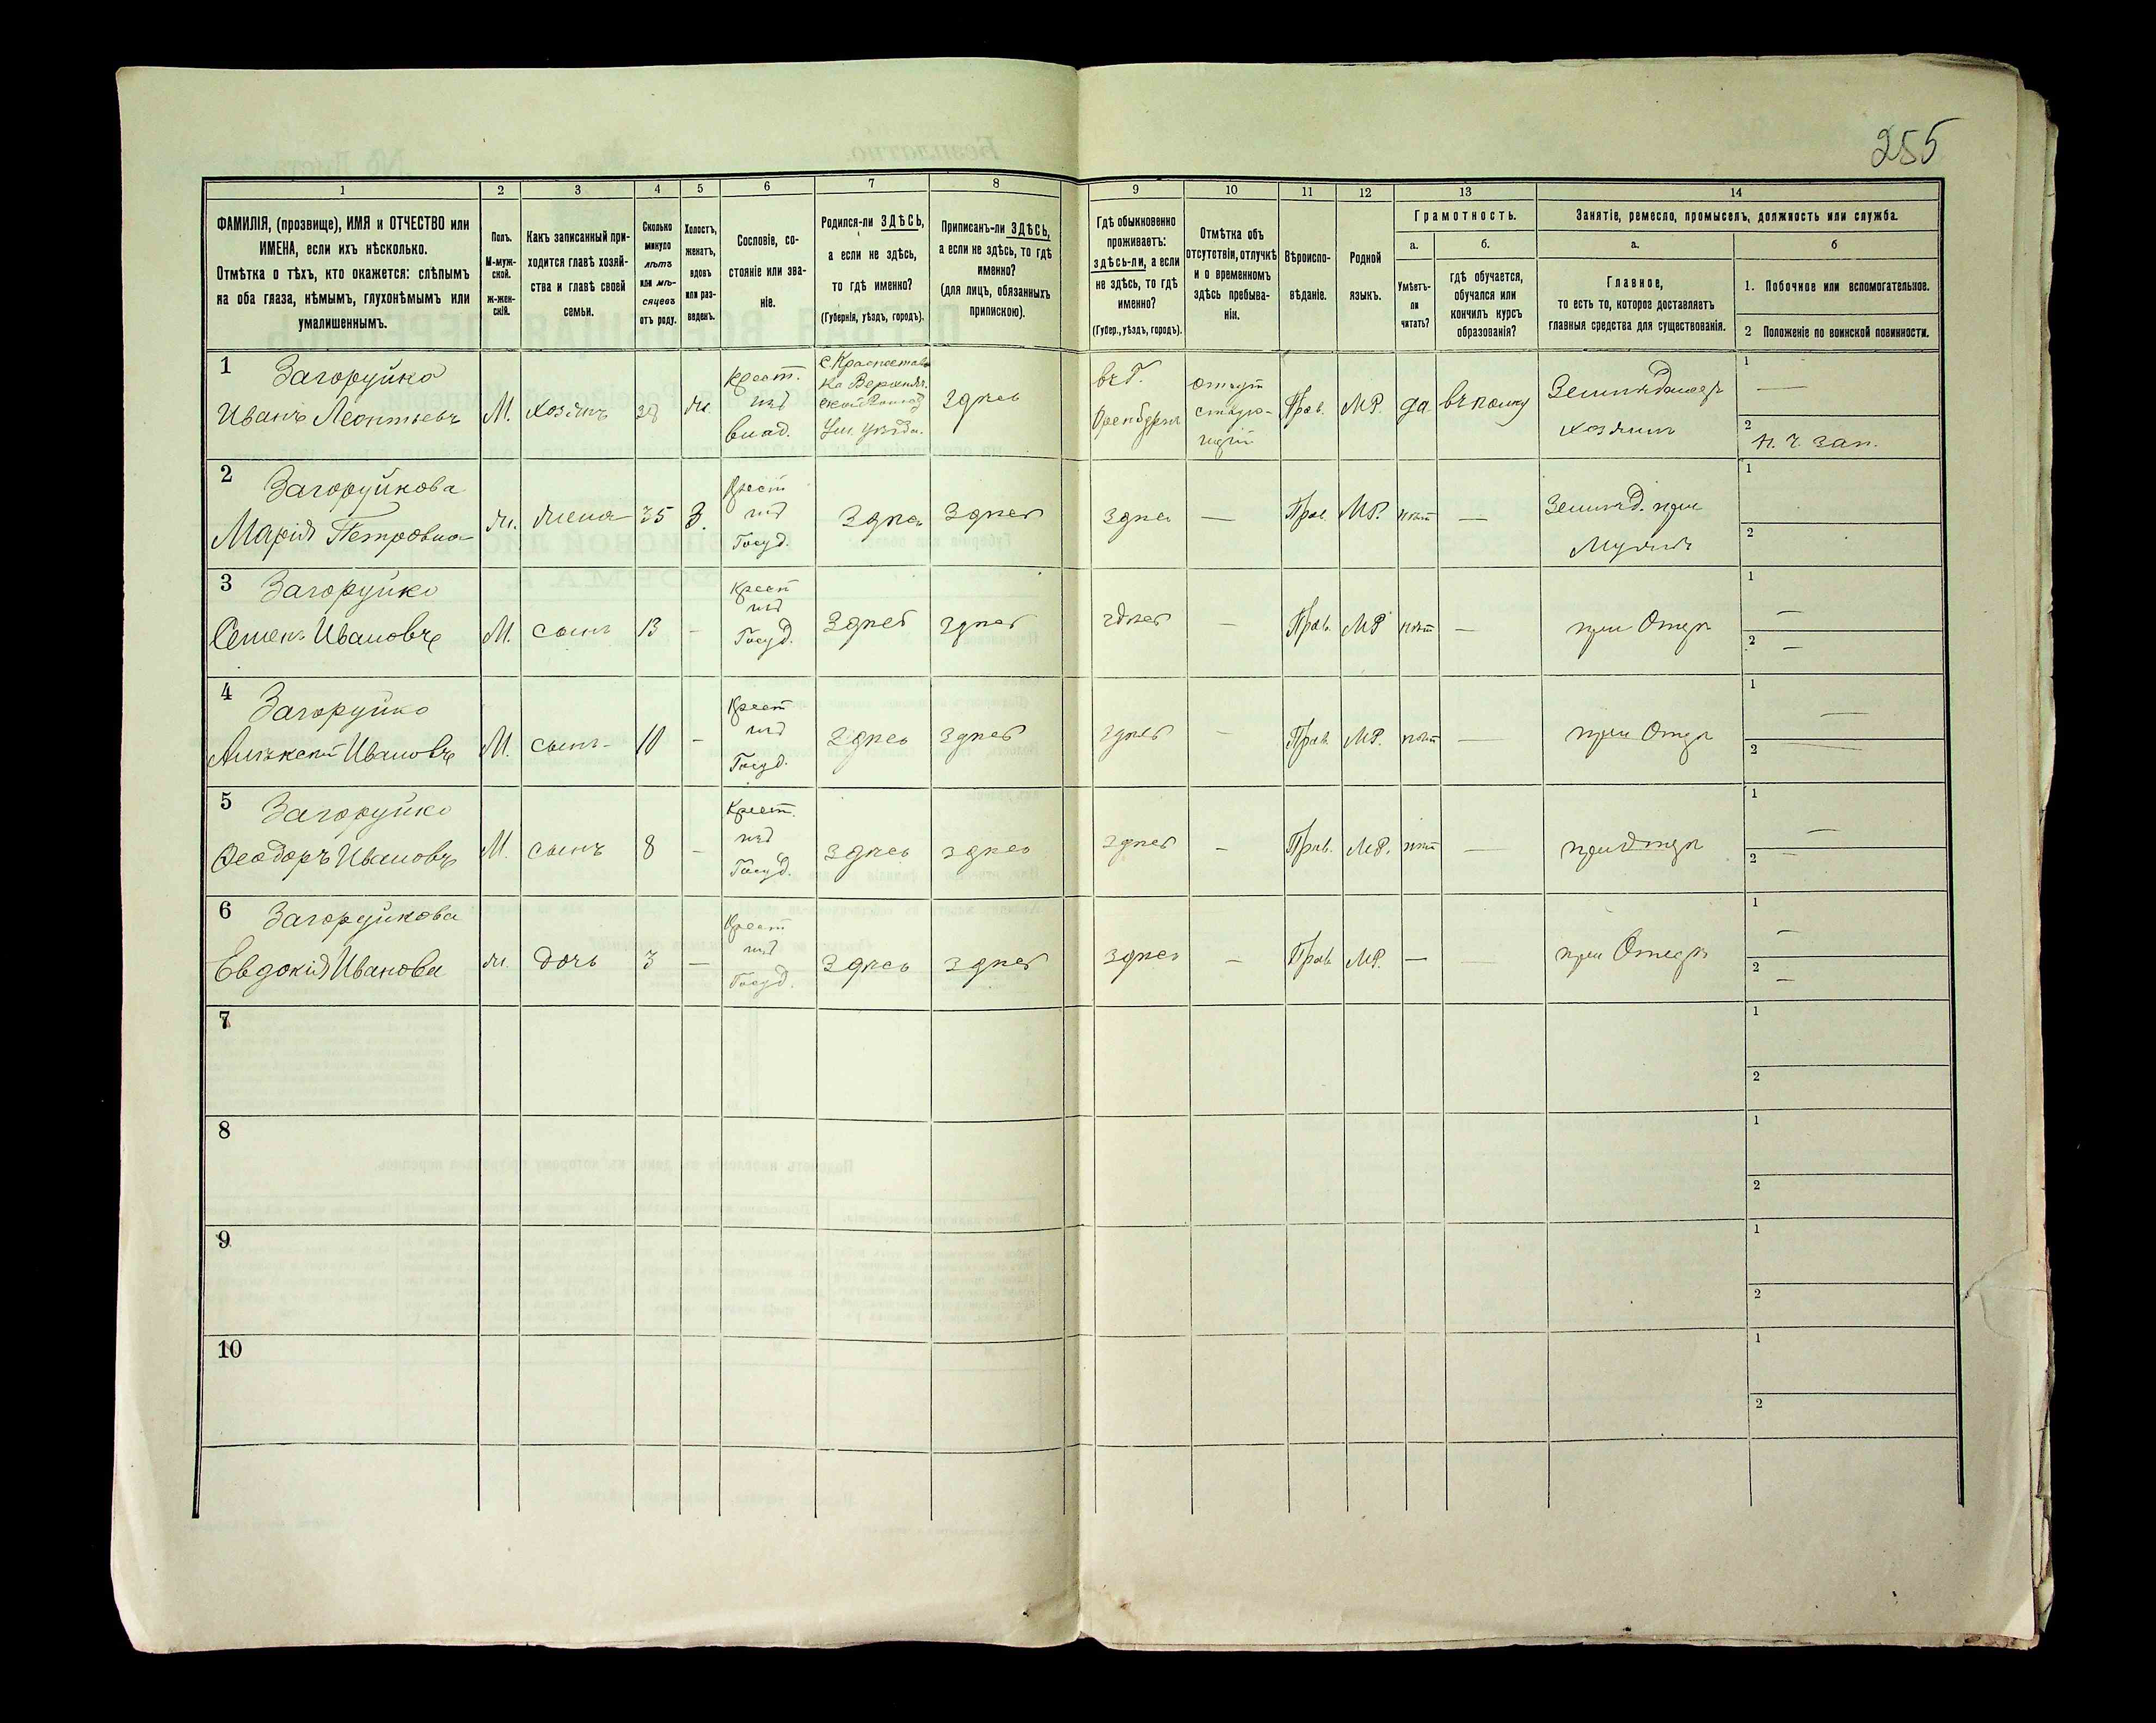 255
1 2 3 4 5 6 7 8 9 10 11 12 13 14
ФАМИЛІЯ, (прозвище), ИМЯ и ОТЧЕСТВО или
ИМЕНА, если ихъ нѣсколько.
Отмѣтка о тѣхъ, кто окажется: слѣпымъ
на оба глаза, нѣмымъ, глухонѣмымъ или
умалишеннымъ.
Полъ.
М-муж-
ской.
ж-жен-
скій.
Какъ записанный при-
ходится главѣ хозяй-
ства и главѣ своей
семьи.
Сколько
минуло
лѣтъ
или мѣ-
сяцевъ
отъ роду.
Холостъ,
женатъ,
вдовъ
или раз-
веденъ.
Сословіе, со-
стояніе или зва-
ніе.
Родился-ли ЗДѢСЬ,
а если не здѣсь,
то гдѣ именно?
(Губернія, уѣздъ, городъ).
Приписанъ-ли ЗДѢСЬ,
а если не здѣсь, то гдѣ
именно?
(для лицъ, обязанныхъ
припискою).
Гдѣ обыкновенно
проживаетъ:
здѣсь-ли, а если
не здѣсь, то гдѣ
именно?
(Губер., уѣздъ, городъ).
Отмѣтка объ
отсутствіи, отлучкѣ
и о временномъ
здѣсь пребыва-
ніи.
Вѣроиспо-
вѣданіе.
Родной
языкъ.
Грамотность.
а.
Умѣетъ-
ли
читать?
б.
гдѣ обучается,
обучался или
кончилъ курсъ
образованія?
Занятіе, ремесло, промыселъ, должность или служба.
а.
Главное,
то есть то, которое доставляетъ
главныя средства для существованія.
б
1. Побочное или вспомогательное.
2 Положеніе по воинской повинности.
1 Загоруйко
Иванъ Леонтьевъ
М.
Хозяинъ
ж.
Крест.
изъ
влад.
здѣсь
въ Г.
Оренбургѣ
отсут
ствую-
щій
Прав.
МР.
да
въ полку
хозяинъ
1 —
2 н. ч. зап.
2 Загоруйкова
Марія Петровна
ж.
жена
35
З.
Крест
изъ
Госуд.
Здѣсь
Здѣсь
здѣсь
—
Прав.
МР.
нѣт
—
Земленд. при
Мужѣ
1
2
3 Загоруйко
Семенъ Ивановъ
М.
сынъ
13
—
Крест
изъ
Госуд.
Здѣсь
здѣсь
здѣсь
—
Прав.
МР
нѣт
—
при Отцѣ
1 —
2 —
4 Загоруйко
Алѣксей Ивановъ
М.
сынъ
10
—
Крест
изъ
Госуд.
здѣсь
здѣсь
здѣсь
—
Прав.
МР.
нѣт
—
при Отцѣ
1 —
2 —
5 Загоруйко
Ѳеодоръ Ивановъ
М.
сынъ
8
—
Крест.
изъ
Госуд.
здѣсь
здѣсь
здѣсь
—
Прав.
МР.
нѣт
—
при Отцѣ
1 —
2 —
6 Загоруйкова
Евдокія Иванова
ж.
дочь
3
—
Крест
изъ
Госуд.
Здѣсь
здѣсь
здѣсь
—
Прав.
МР.
—
—
при Отцѣ
1 —
2 —
7
1
2
8
1
2
9
1
2
10
1
2